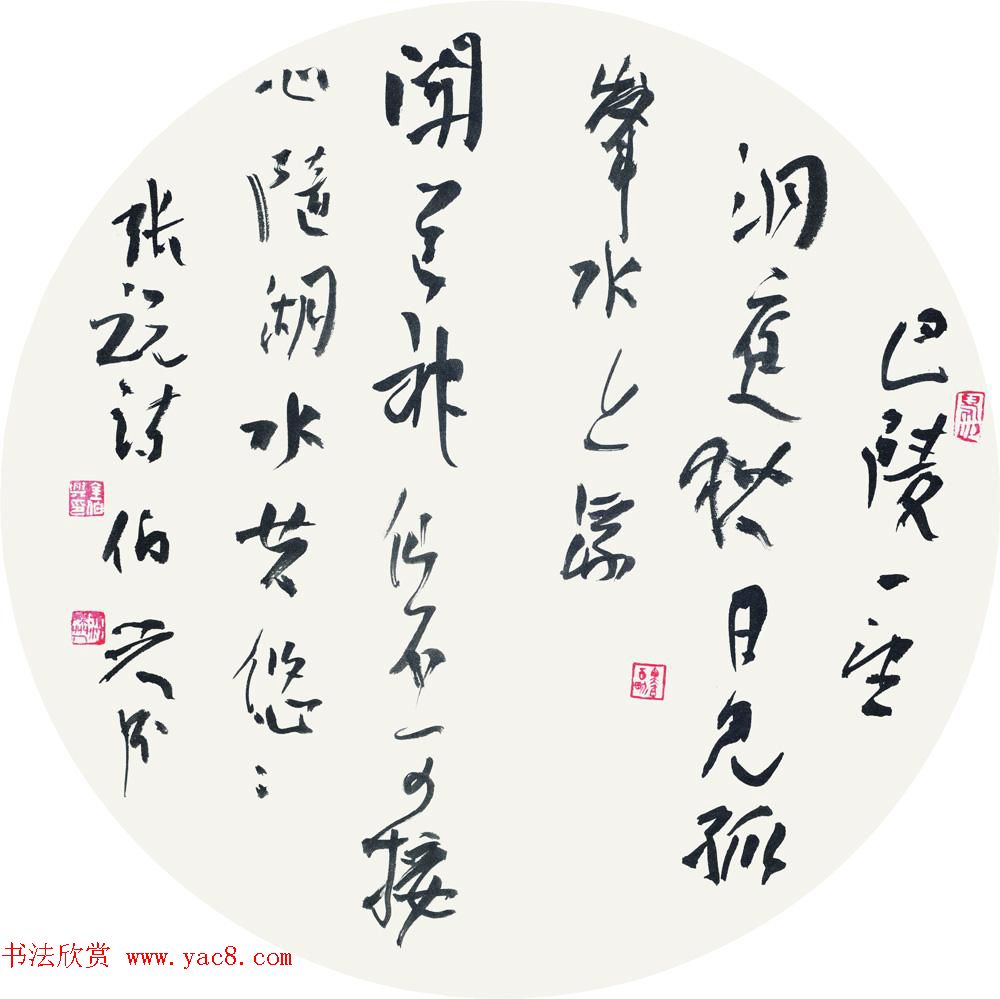 巴陵一望
洞庭秋日見孤
峯水上浮
聞道神仙不可接
心隨湖水共悠〻
張説詩 伯兴书
书法欣赏 www.yac8.com